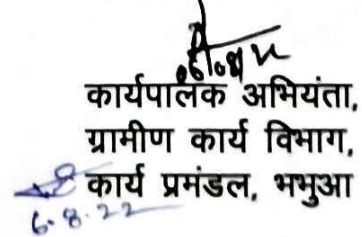 कार्यपालक अभियंता,
ग्रामीण कार्य विभाग,
कार्य प्रमंडल, भभुआ
6.8.22